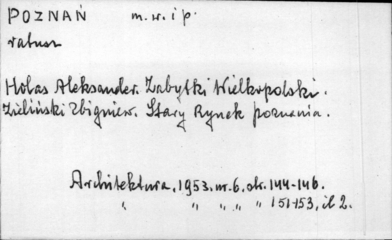 POZNAŃ m. w. i p.
ratusz
Holas Aleksander. Zabytki Wielkopolski.
Zieliński Zbigniew. Stary Rynek Poznania.
Architektura, 1953. nr. 6, str. 144-146.
" " " " " 151-153, il 2.